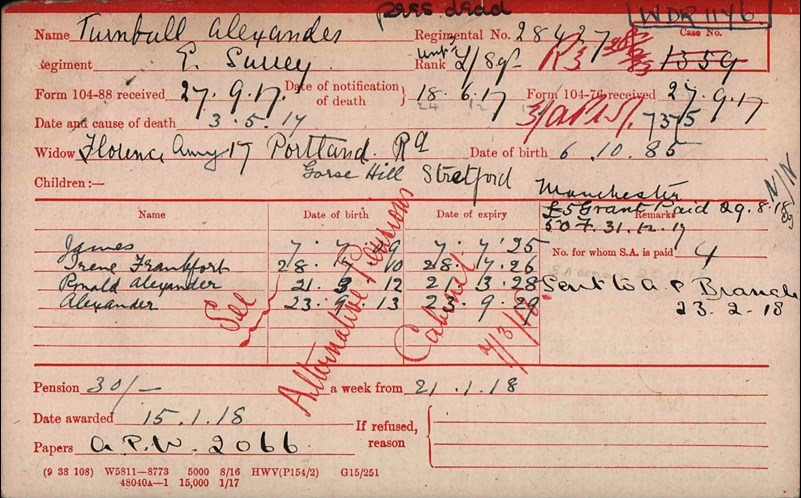 pres dead WDR 11 Y 6.
Name Turnbull Alexander Regimental No. 28427 R3 Case No. 1359
Regiment E. Surrey Unpd Rank L/Sgt
Form 104-88 received 27.9.17. Date of notification of death } 18.6.17 Form 104-76 received 27.9.17
Date and cause of death 3.5.17 7375
Widow Florence Amy 17 Portland Rd Date of birth 6.10.85
Gorse Hill Stretford Manchester
Children:— £5 Grant Paid 29.8.18
Name Date of birth Date of expiry Remarks
S O F. 31.12.17
James 7.7.09 7.7.25 No. for whom S.A. is paid 4
Irene Frankfort 28.7.10 28.7.26
Ronald Alexander 21.3.12 21.3.28 Sent to A.P Branch
Alexander 23.9.13 23.9.29 23.2.18
See Alternative Pensions Cabinet 7/3/18
Pension 30/- a week from 21.1.18
Date awarded 15.1.18 If refused, reason
Papers A.P.W. 2066
(9 38 108) W5811—8773 5000 8/16 HWV(P154/2) G15/251
48040A—1 15,000 1/17